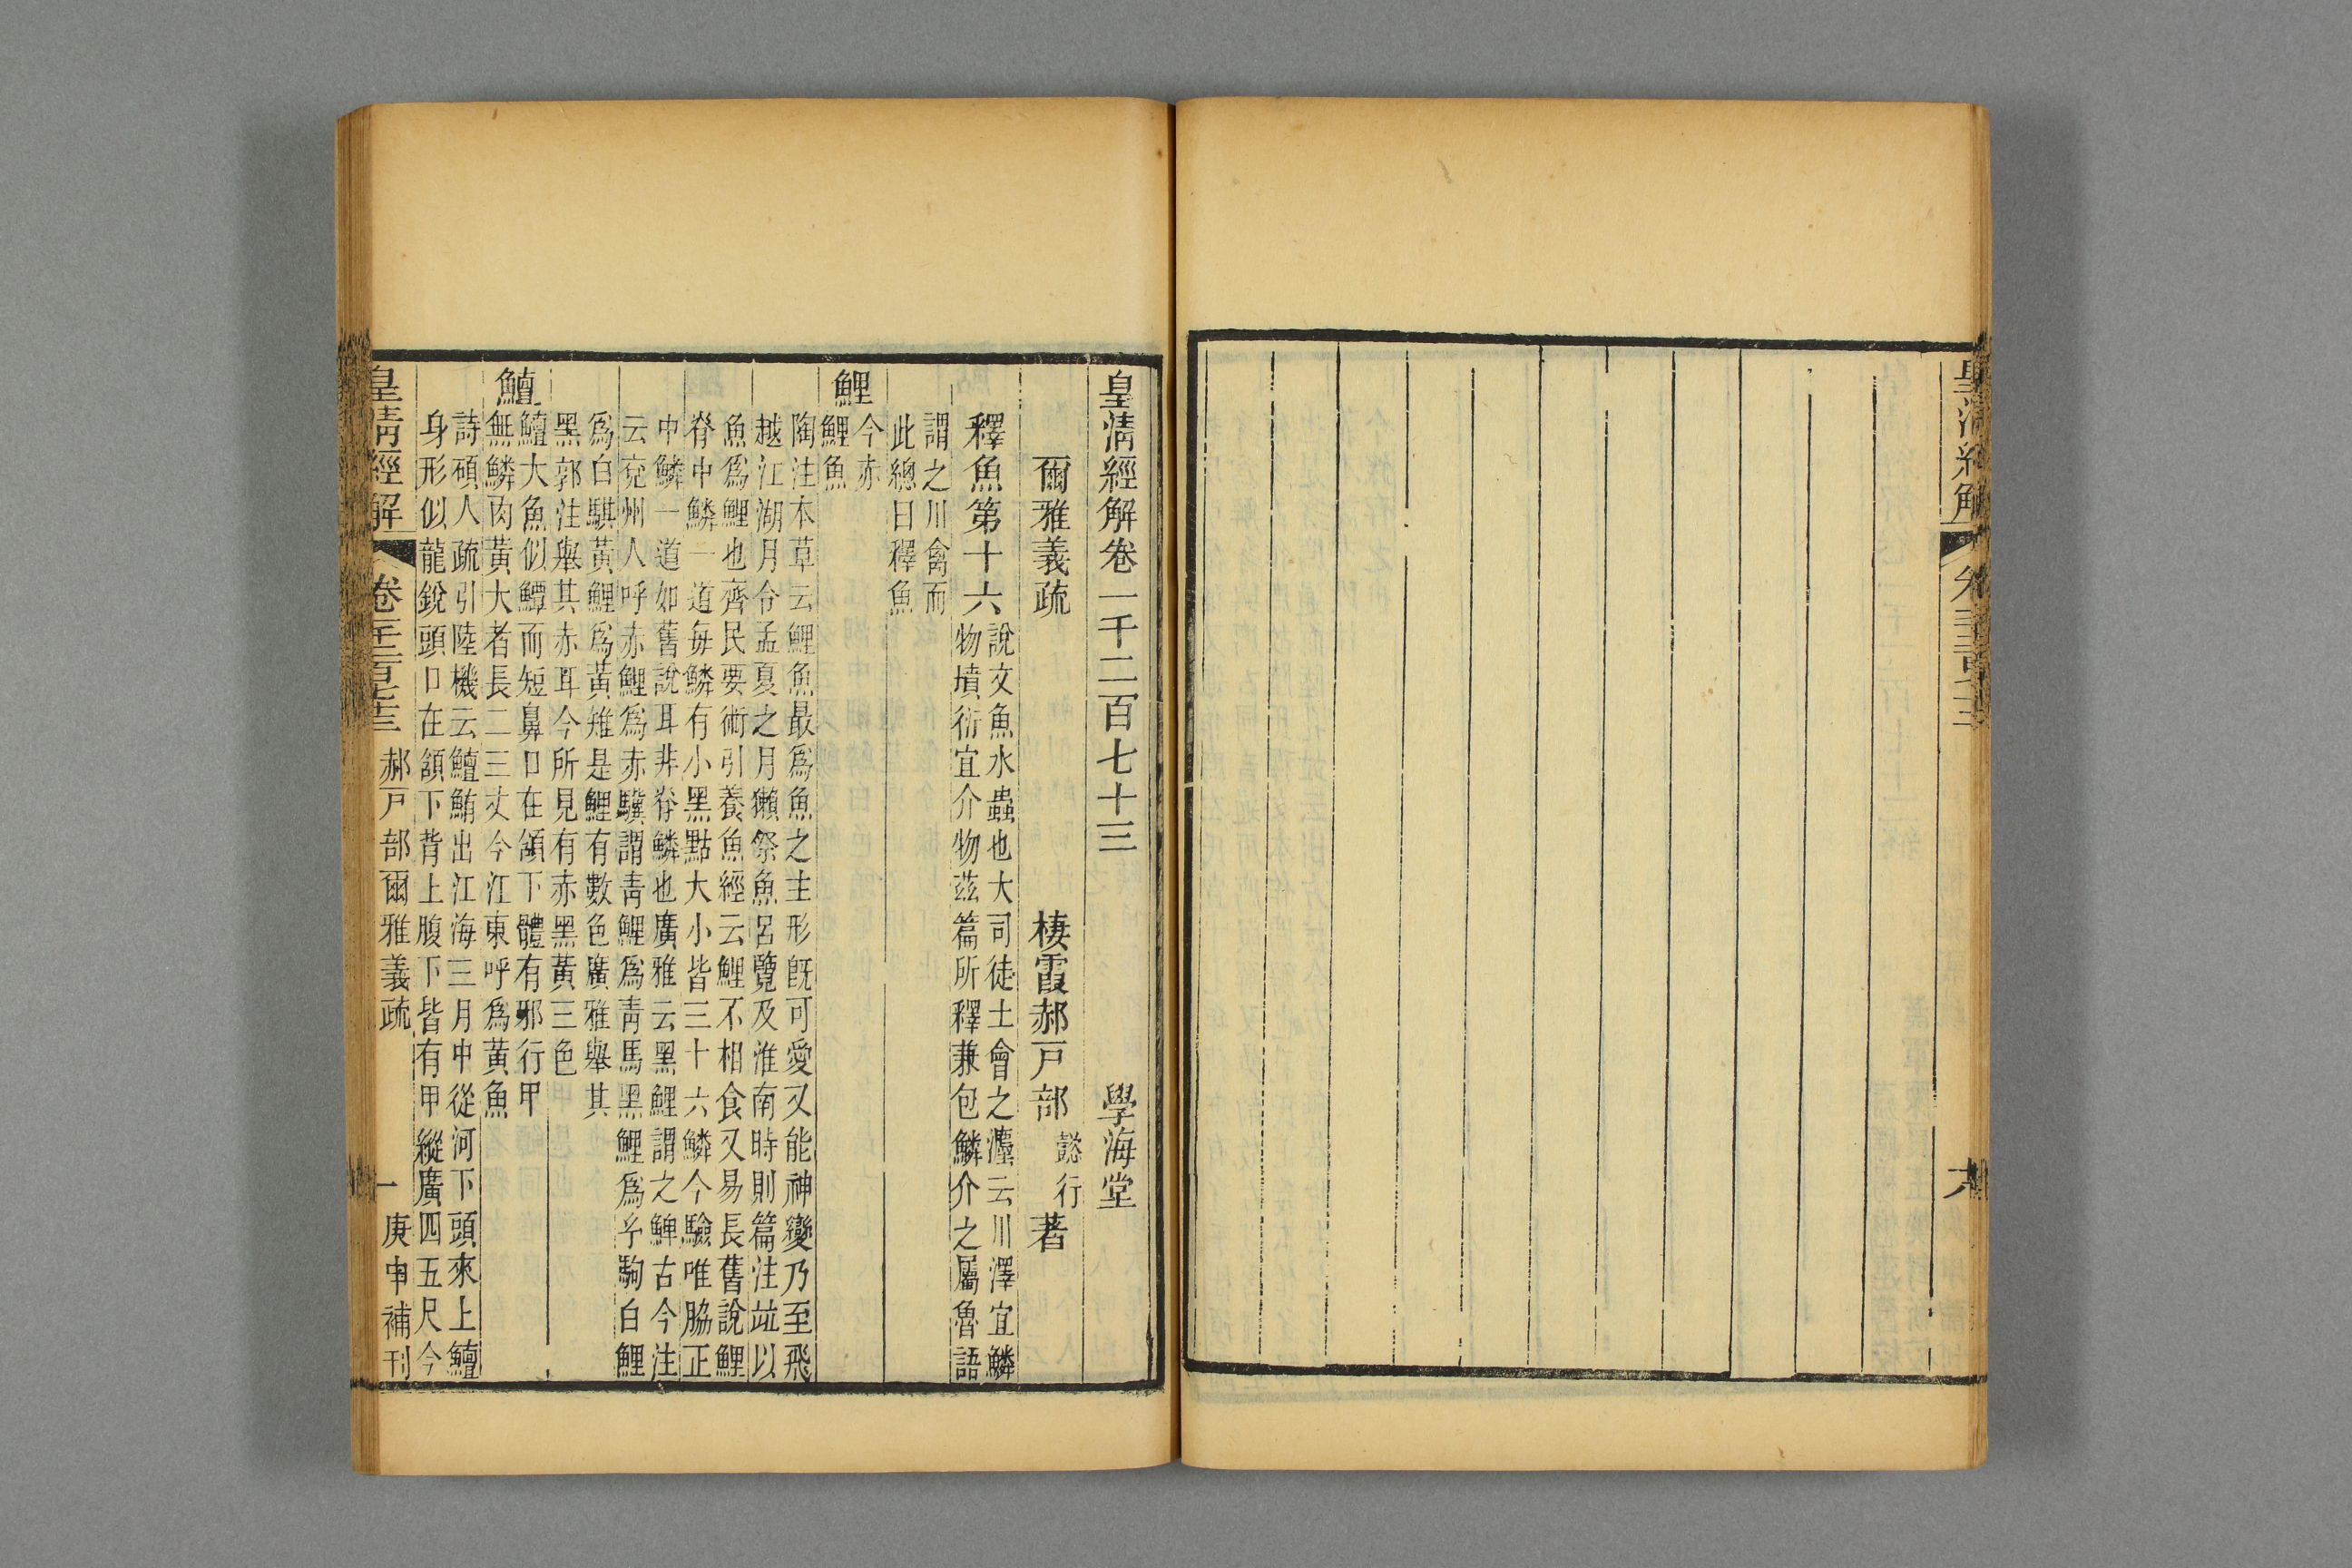 皇清經解卷一千二百七十三　學海堂
爾雅義疏　棲霞郝戸部懿行著
釋魚第十六
說文魚水蟲也大司徒土會之灋云川澤宜鱗
物墳衍宜介物茲篇所釋兼包鱗介之屬魯語
謂之川禽而
此總曰釋魚
鯉
今赤
鯉魚
陶注本草云鯉魚最爲魚之主形旣可愛又能神變乃至飛
越江湖月令孟夏之月獺祭魚呂覽及淮南時則篇注竝以
魚爲鯉也齊民要術引養魚經云鯉不相食又易長舊說鯉
脊中鱗一道每鱗有小黑點大小皆三十六鱗今驗唯脇正
中鱗一道如舊說耳非脊鱗也廣雅云黑鯉謂之鯶古今注
云兗州人呼赤鯉爲赤驥謂靑鯉爲靑馬黑鯉爲𤣥駒白鯉
爲白騏黃鯉爲黃雉是鯉有數色廣雅舉其
黑郭注舉其赤耳今所見有赤黑黃三色
鱣
鱣大魚似鱏而短鼻口在頷下體有邪行甲
無鱗肉黃大者長二三丈今江東呼爲黃魚
詩碩人疏引陸機云鱣鮪出江海三月中從河下頭來上鱣
身形似龍銳頭口在頷下背上腹下皆有甲縱廣四五尺今
皇清經解　卷一千二百七十三　郝戸部爾雅義疏　一　庚申補刊